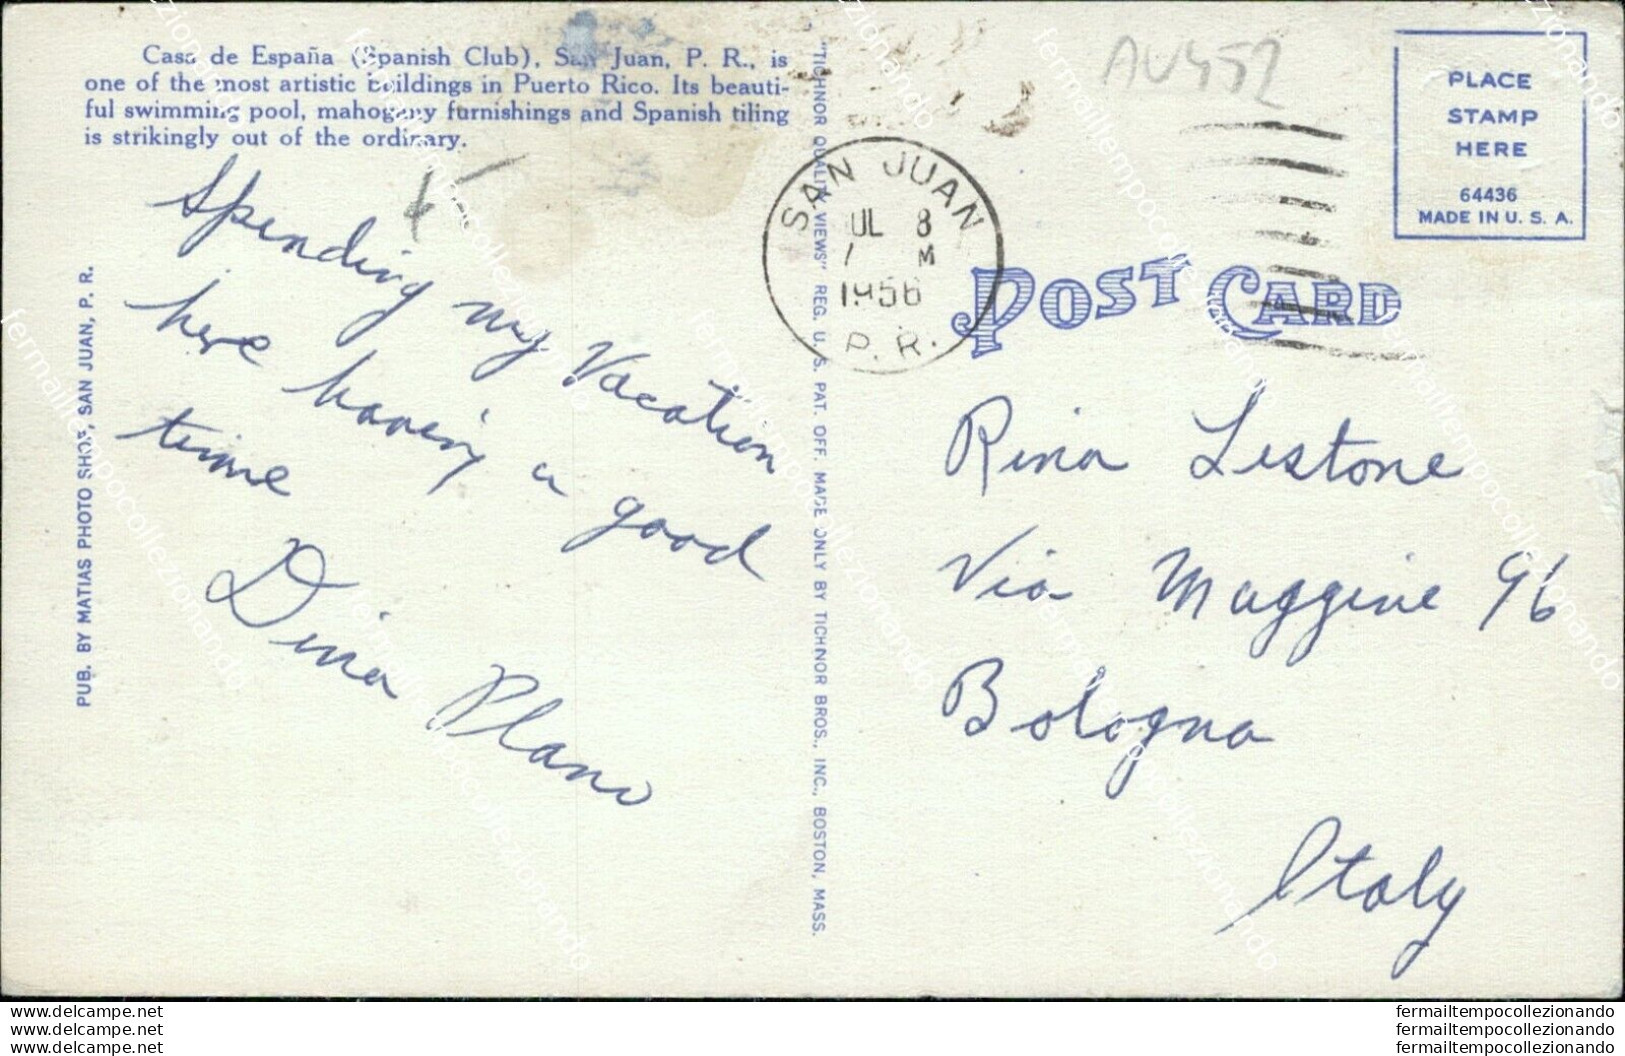 Casa de España (Spanish Club), San Juan, P. R., is
one of the most artistic buildings in Puerto Rico. Its beauti-
ful swimming pool, mahogany furnishings and Spanish tiling
is strikingly out of the ordinary.
Spending my Vacation
here having a good
time
Dina Plano
PUB. BY MATIAS PHOTO SHOP, SAN JUAN, P. R.
"TICHNOR QUALITY VIEWS" REG. U. S. PAT. OFF. MADE ONLY BY TICHNOR BROS., INC., BOSTON, MASS.
AU452
SAN JUAN
JUL 8
M
1956
P.R.
PLACE
STAMP
HERE
64436
MADE IN U. S. A.
POST CARD
Rina Listone
Via Maggine 96
Bologna
Italy
www.delcampe.net
www.delcampe.net
www.delcampe.net
fermailtempocollezionando
fermailtempocollezionando
fermailtempocollezionando